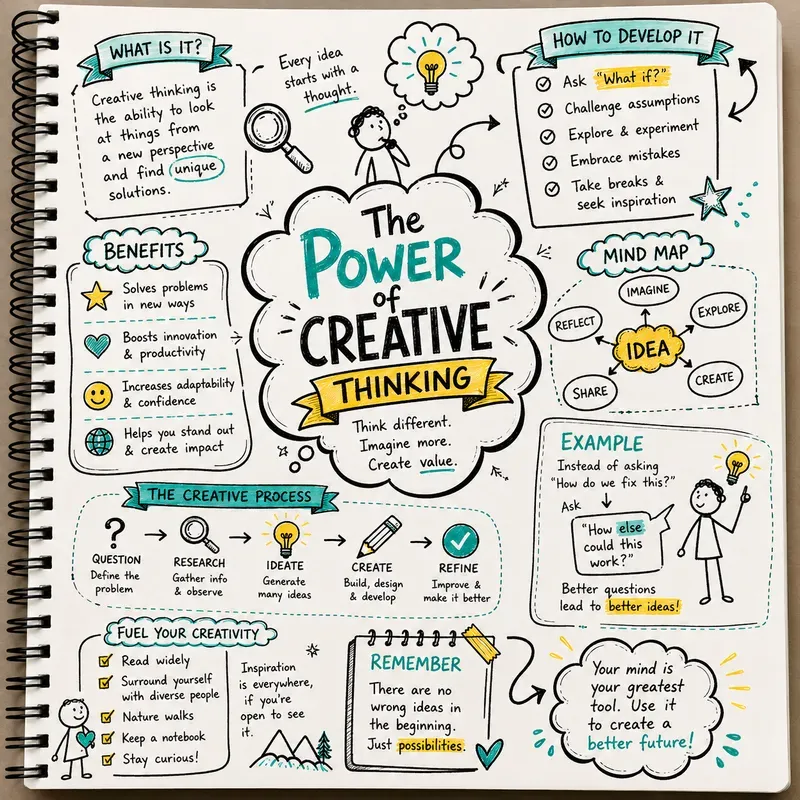 WHAT IS IT?
Creative thinking is
the ability to look
at things from
a new perspective
and find unique
solutions.
Every idea
starts with a
thought.
HOW TO DEVELOP IT
Ask "What if?"
Challenge assumptions
Explore & experiment
Embrace mistakes
Take breaks &
seek inspiration
The
POWER
of
CREATIVE
THINKING
Think different.
Imagine more.
Create value.
BENEFITS
Solves problems
in new ways
Boosts innovation
& productivity
Increases adaptability
& confidence
Helps you stand out
& create impact
MIND MAP
IMAGINE
REFLECT
EXPLORE
IDEA
SHARE
CREATE
EXAMPLE
Instead of asking
"How do we fix this?"
Ask
"How else
could this
work?"
Better questions
lead to better ideas!
THE CREATIVE PROCESS
?
QUESTION
Define the
problem
RESEARCH
Gather info
& observe
IDEATE
Generate
many ideas
CREATE
Build, design
& develop
REFINE
Improve &
make it better
FUEL YOUR CREATIVITY
Read widely
Surround yourself
with diverse people
Nature walks
Keep a notebook
Stay curious!
Inspiration
is everywhere,
if you're
open to see
it.
REMEMBER
There are no
wrong ideas in
the beginning.
Just possibilities.
Your mind is
your greatest
tool. Use it
to create a
better future!